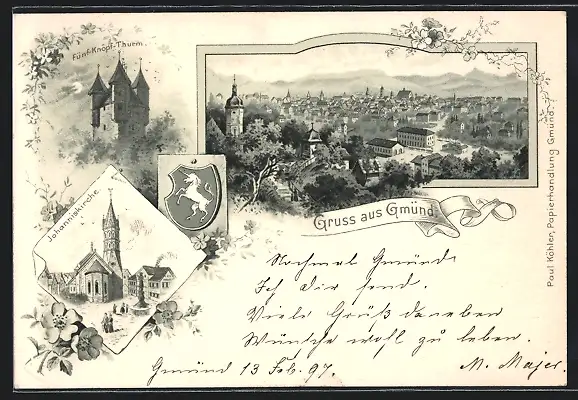 Fünf-Knopf-Thurm.
Johanniskirche
Gruss aus Gmünd
Paul Köhler, Papierhandlung Gmünd.
Nochmal Gmünd
Ich Dir send.
Viele Grüß daneben
Wünsche wohl zu leben.
Gmünd 13 Feb. 97.
M. Majer.